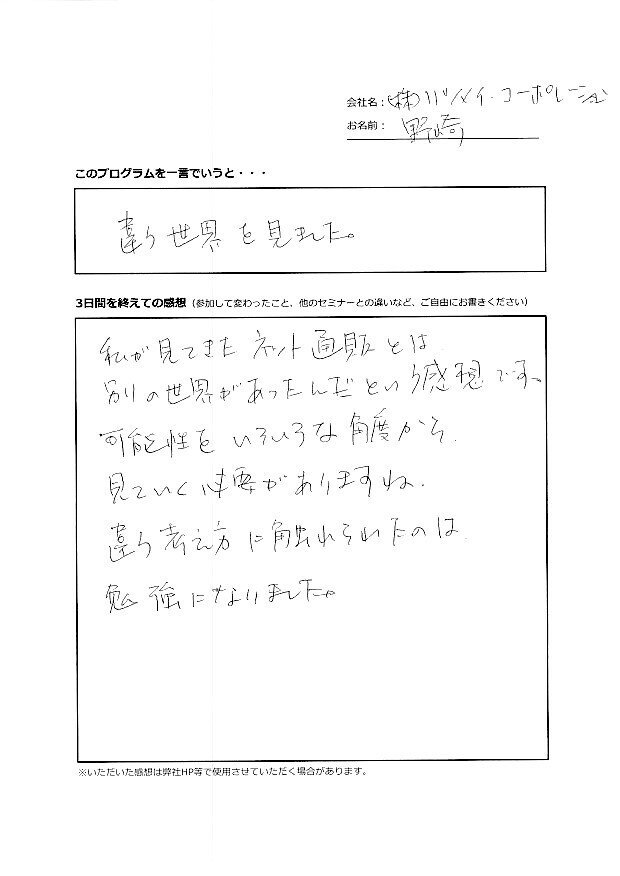 会社名：(株)リバメイ・コーポレーション
お名前： 野崎
このプログラムを一言でいうと・・・
違う世界を見ました。
3日間を終えての感想（参加して変わったこと、他のセミナーとの違いなど、ご自由にお書きください）
私が見てきたネット通販とは
別の世界があったんだという感想です。
可能性をいろいろな角度から
見ていく必要がありますね。
違う考え方に触れられたのは
勉強になりました。
※いただいた感想は弊社HP等で使用させていただく場合があります。